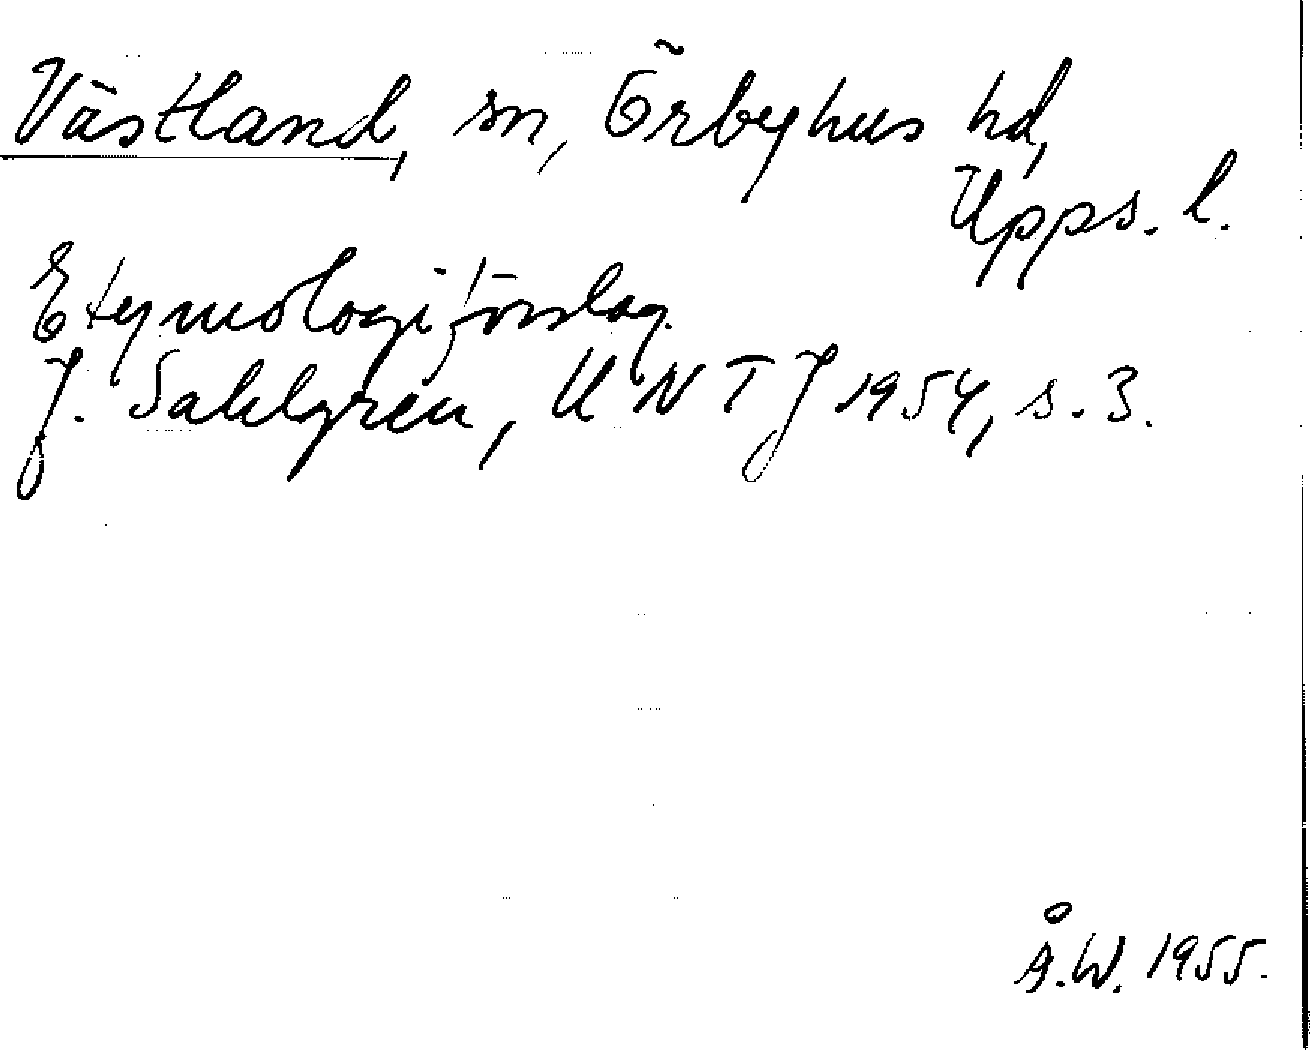 Västland, sn, Örbyhus hd,
Upps. l.
Etymologiförslag.
J. Sahlgren, UNTJ 1954, s. 3.
Å.W. 1955.